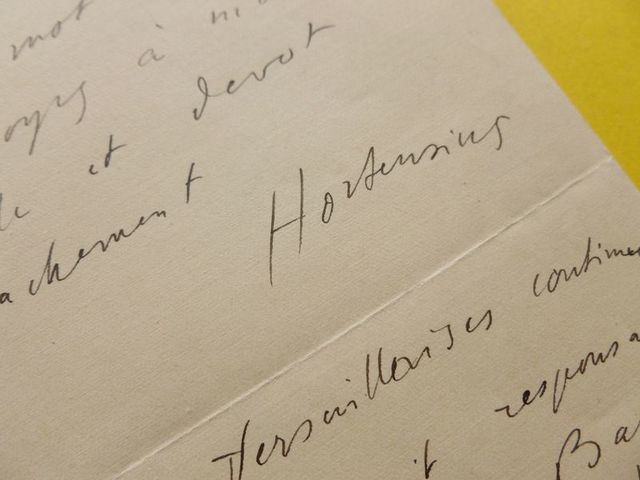 mot
à
et devot
achement
Hortensius
Versaillaises continue
t responsa
Ba